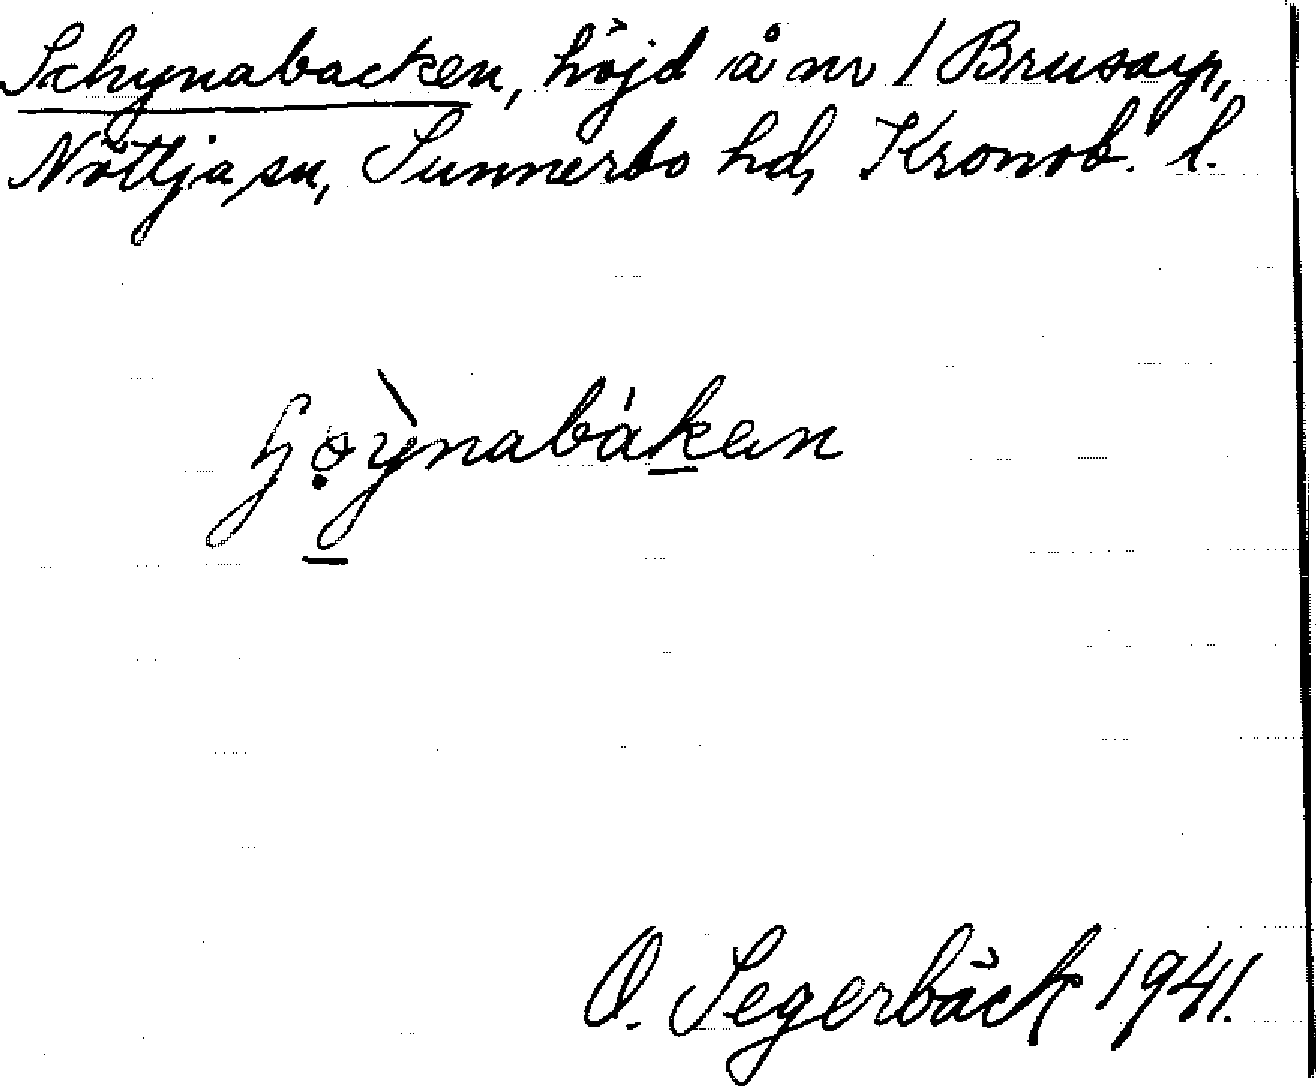 Schynabacken, höjd å nr 1 Brusarp,
Nöttja sn, Sunnerbo hd, Kronob. l.
O. Segerbäck 1941.